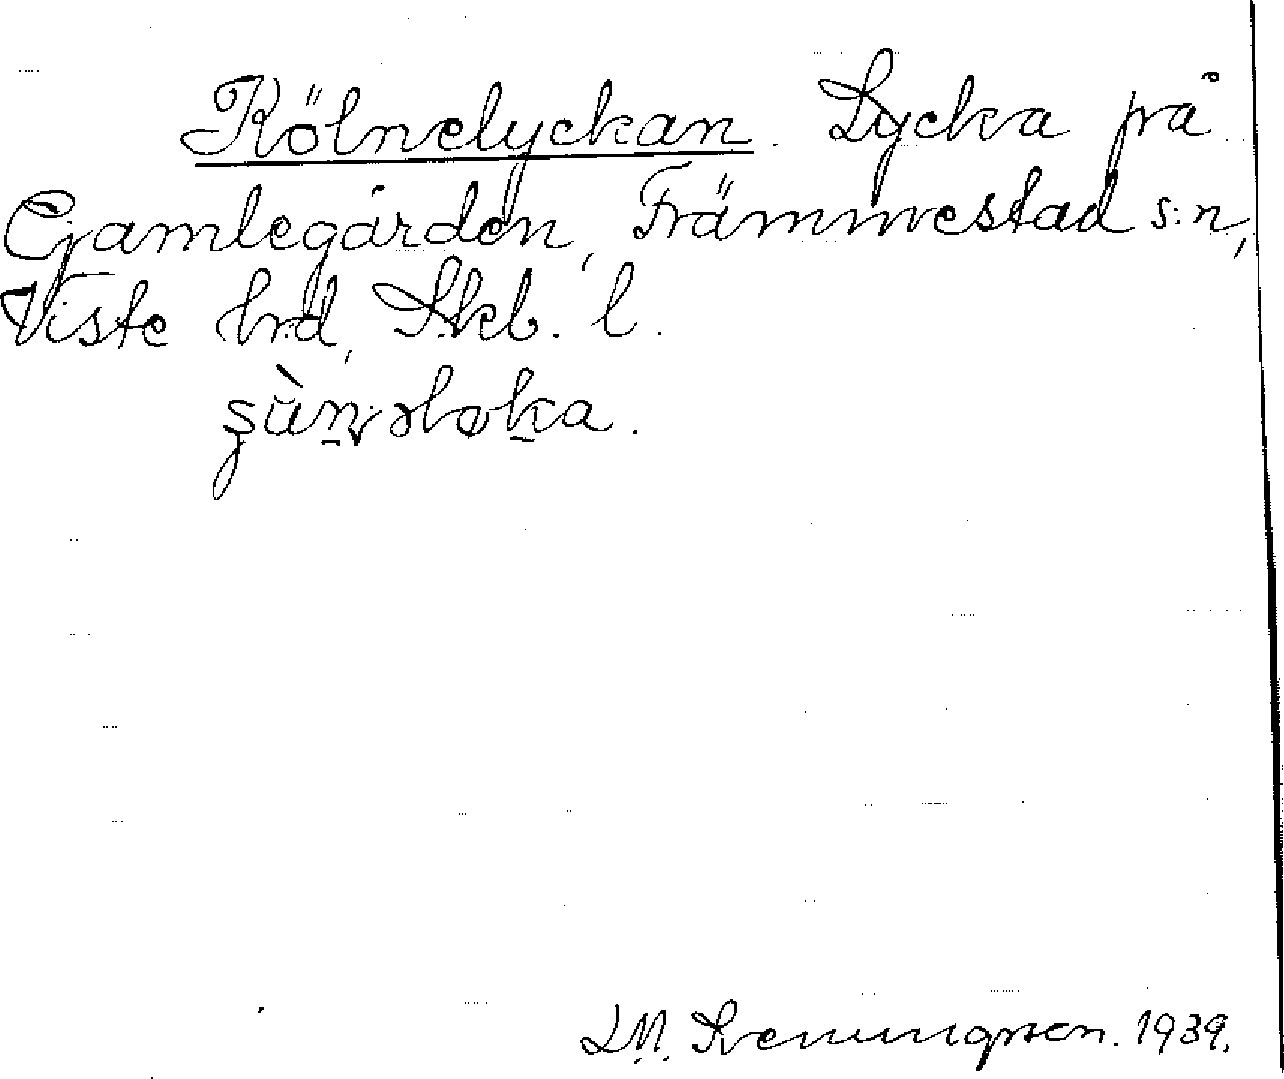 Kölnelyckan. Lycka på
Gamlegården, Främmestad s:n,
Viste hrd, Skb. l.
Sveningsson. 1939.